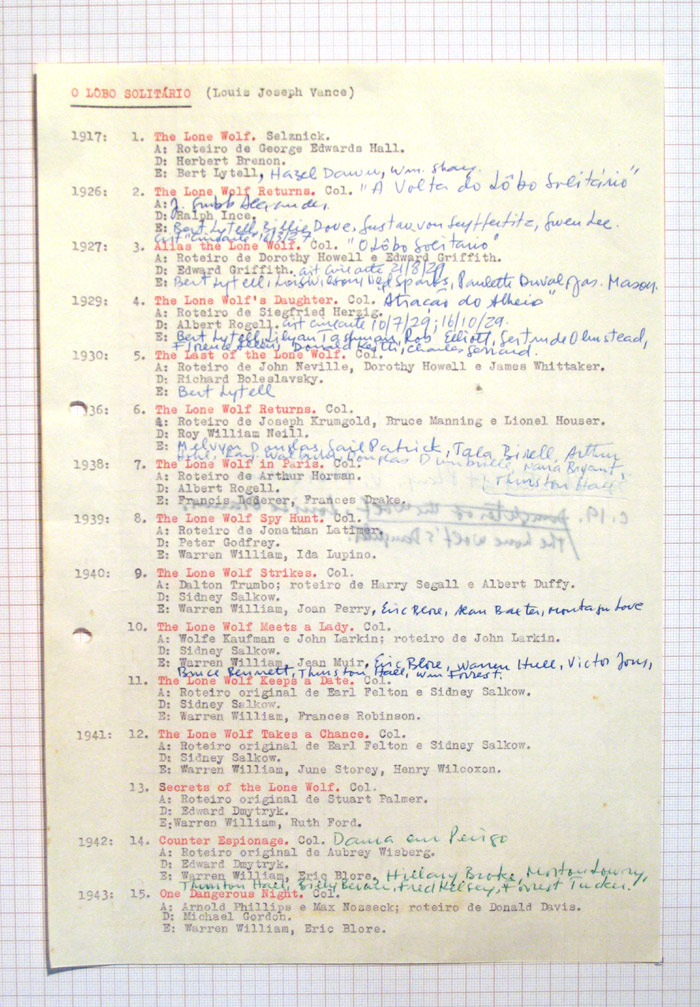 O LÔBO SOLITÁRIO (Louis Joseph Vance)
1917: 1. The Lone Wolf. Selznick.
A: Roteiro de George Edwards Hall.
D: Herbert Brenon.
E: Bert Lytell, Hazel Dawn, Wm. Shay.
1926: 2. The Lone Wolf Returns. Col. "A Volta do Lôbo Solitário"
A: J. Grubb Alexander.
D: Ralph Ince.
E: Bert Lytell, Billie Dove, Gustav von Seyffertitz, Gwen Lee.
1927: 3. Alias the Lone Wolf. Col. "O Lôbo Solitário"
A: Roteiro de Dorothy Howell e Edward Griffith.
D: Edward Griffith. crit cinearte 21/8/29
E: Bert Lytell, Lois Wilson, Ned Sparks, Paulette Duval, Jas. Mason.
1929: 4. The Lone Wolf's Daughter. Col. Atração do Alheio"
A: Roteiro de Siegfried Herzig.
D: Albert Rogell. crit cinearte 10/7/29; 16/10/29.
E: Bert Lytell, Lilyan Tashman, Rob Elliott, Gertrude Olmstead,
Florence Allen, Donald Keith, Charles Gerrard.
1930: 5. The Last of the Lone Wolf. Col.
A: Roteiro de John Neville, Dorothy Howell e James Whittaker.
D: Richard Boleslavsky.
E: Bert Lytell
36: 6. The Lone Wolf Returns. Col.
A: Roteiro de Joseph Krumgold, Bruce Manning e Lionel Houser.
D: Roy William Neill.
E: Melvyn Douglas, Gail Patrick, Tala Birell, Arthur
Hohl, Ray. Walburn, Douglas Dumbrille, Nana Bryant,
Thurston Hall
1938: 7. The Lone Wolf in Paris. Col.
A: Roteiro de Arthur Horman.
D: Albert Rogell.
E: Francis Lederer, Frances Drake.
1939: 8. The Lone Wolf Spy Hunt. Col.
A: Roteiro de Jonathan Latimer.
D: Peter Godfrey.
E: Warren William, Ida Lupino.
1940: 9. The Lone Wolf Strikes. Col.
A: Dalton Trumbo; roteiro de Harry Segall e Albert Duffy.
D: Sidney Salkow.
E: Warren William, Joan Perry, Eric Blore, Alan Baxter, Montagu Love
10. The Lone Wolf Meets a Lady. Col.
A: Wolfe Kaufman e John Larkin; roteiro de John Larkin.
D: Sidney Salkow.
E: Warren William, Jean Muir, Eric Blore, Warren Hull, Victor Jory,
Bruce Bennett, Thurston Hall, Wm Forrest.
11. The Lone Wolf Keeps a Date. Col.
A: Roteiro original de Earl Felton e Sidney Salkow.
D: Sidney Salkow.
E: Warren William, Frances Robinson.
1941: 12. The Lone Wolf Takes a Chance. Col.
A: Roteiro original de Earl Felton e Sidney Salkow.
D: Sidney Salkow.
E: Warren William, June Storey, Henry Wilcoxon.
13. Secrets of the Lone Wolf. Col.
A: Roteiro original de Stuart Palmer.
D: Edward Dmytryk.
E:Warren William, Ruth Ford.
1942: 14. Counter Espionage. Col. Dama em Perigo
A: Roteiro original de Aubrey Wisberg.
D: Edward Dmytryk.
E: Warren William, Eric Blore, Hillary Brooke, Morton Lowry,
Thurston Hall, Billy Bevan, Fred Kelsey, Forrest Tucker.
1943: 15. One Dangerous Night. Col.
A: Arnold Phillips e Max Nosseck; roteiro de Donald Davis.
D: Michael Gordon.
E: Warren William, Eric Blore.